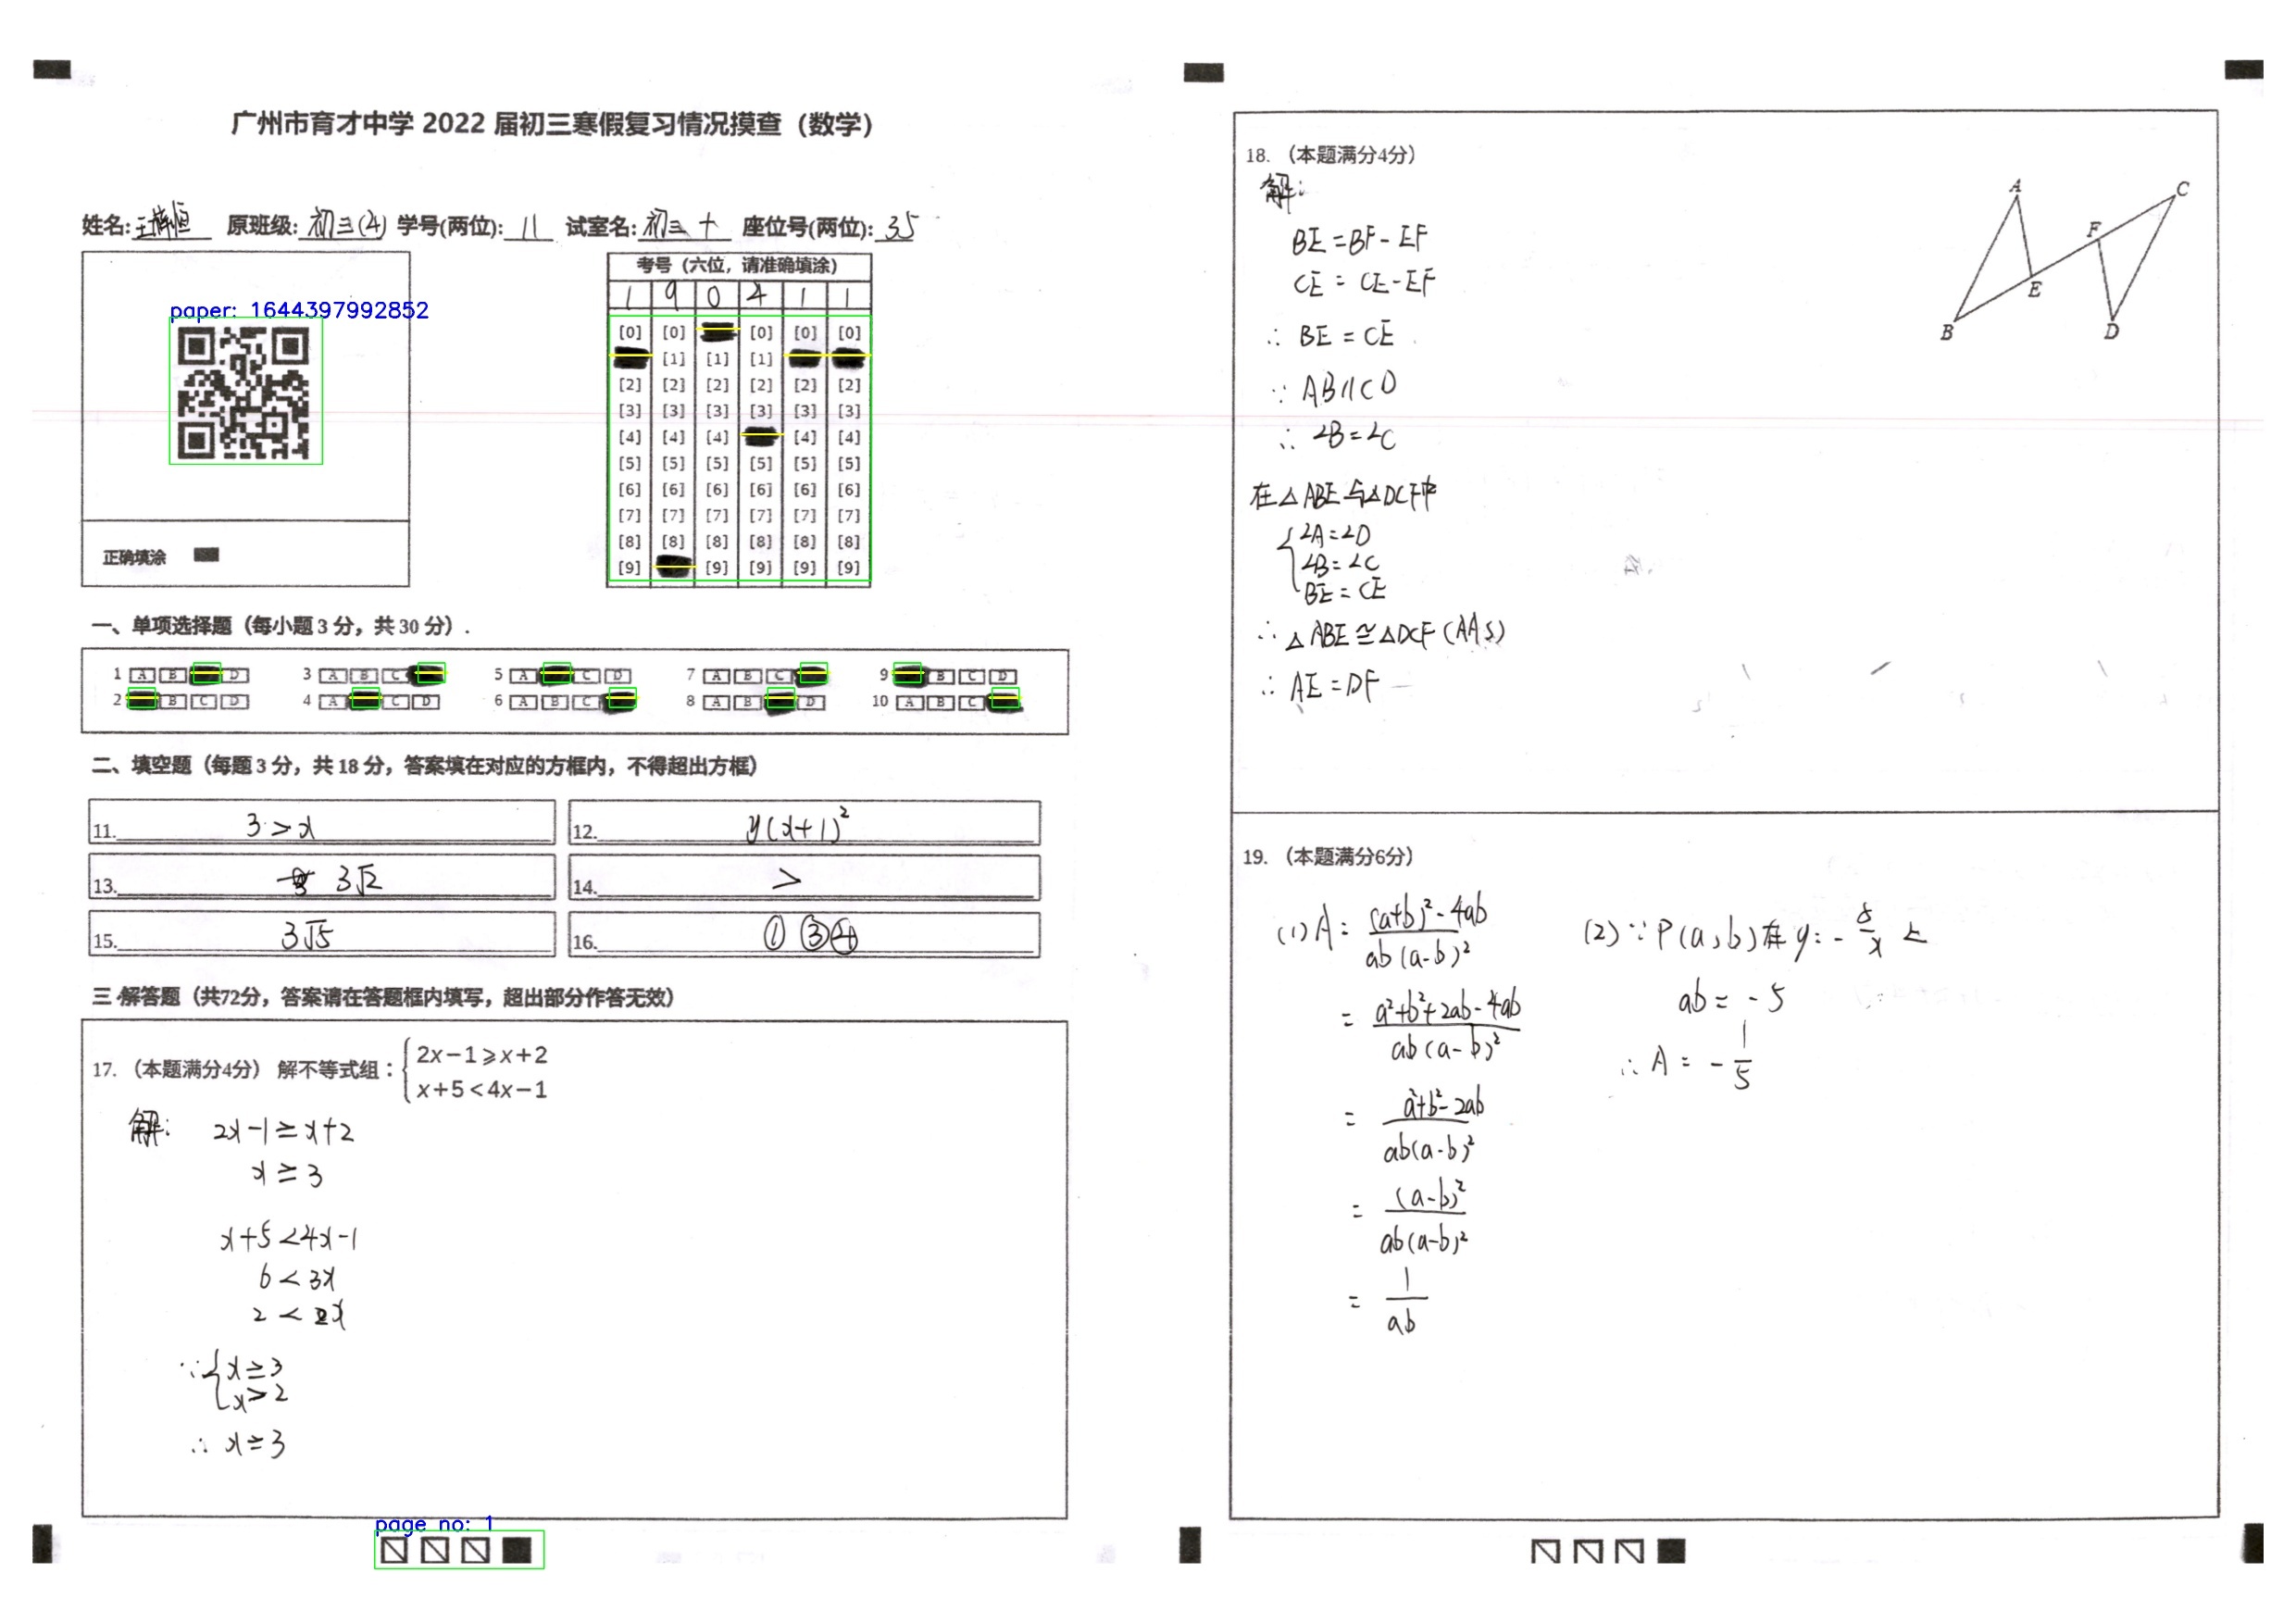 广州市育才中学 2022 届初三寒假复习情况摸查（数学）
姓名: 王 原班级: 初三(4) 学号(两位): 11 试室名: 初三十 座位号(两位): 35
考号（六位，请准确填涂）
1 9 0 4 1 1
paper: 1644397992852
[0] [0] [0] [0] [0]
[1] [1] [1]
[2] [2] [2] [2] [2] [2]
[3] [3] [3] [3] [3] [3]
[4] [4] [4] [4] [4]
[5] [5] [5] [5] [5] [5]
[6] [6] [6] [6] [6] [6]
[7] [7] [7] [7] [7] [7]
[8] [8] [8] [8] [8] [8]
[9] [9] [9] [9] [9]
正确填涂
一、单项选择题（每小题 3 分，共 30 分）.
1 A B D 3 A B C 5 A C D 7 A B C 9 B C D
2 B C D 4 A C D 6 A B C 8 A B D 10 A B C
二、填空题（每题 3 分，共 18 分，答案填在对应的方框内，不得超出方框）
11. 3 > x 12. y(x+1)²
13. 3√2 14. >
15. 3√5 16. ① ③④
三 解答题（共72分，答案请在答题框内填写，超出部分作答无效）
17. （本题满分4分） 解不等式组：{2x−1⩾x+2
x+5<4x−1
解: 2x-1≥x+2
x≥3
x+5<4x-1
6<3x
2<x
∵{x≥3
x>2
∴ x≥3
page no: 1
18. （本题满分4分）
解:
A
C
F
E
B
D
BE=BF-EF
CE=CE-EF
∴ BE=CE
∵ AB∥CD
∴ ∠B=∠C
在△ABE与△DCF中
{∠A=∠D
∠B=∠C
BE=CE
∴ △ABE≅△DCF(AAS)
∴ AE=DF
19. （本题满分6分）
(1) A= (a+b)²-4ab / ab(a-b)²
= a²+b²+2ab-4ab / ab(a-b)²
= a²+b²-2ab / ab(a-b)²
= (a-b)² / ab(a-b)²
= 1 / ab
(2) ∵P(a,b)在y=- / x 上
ab=-5
∴ A=- 1/5